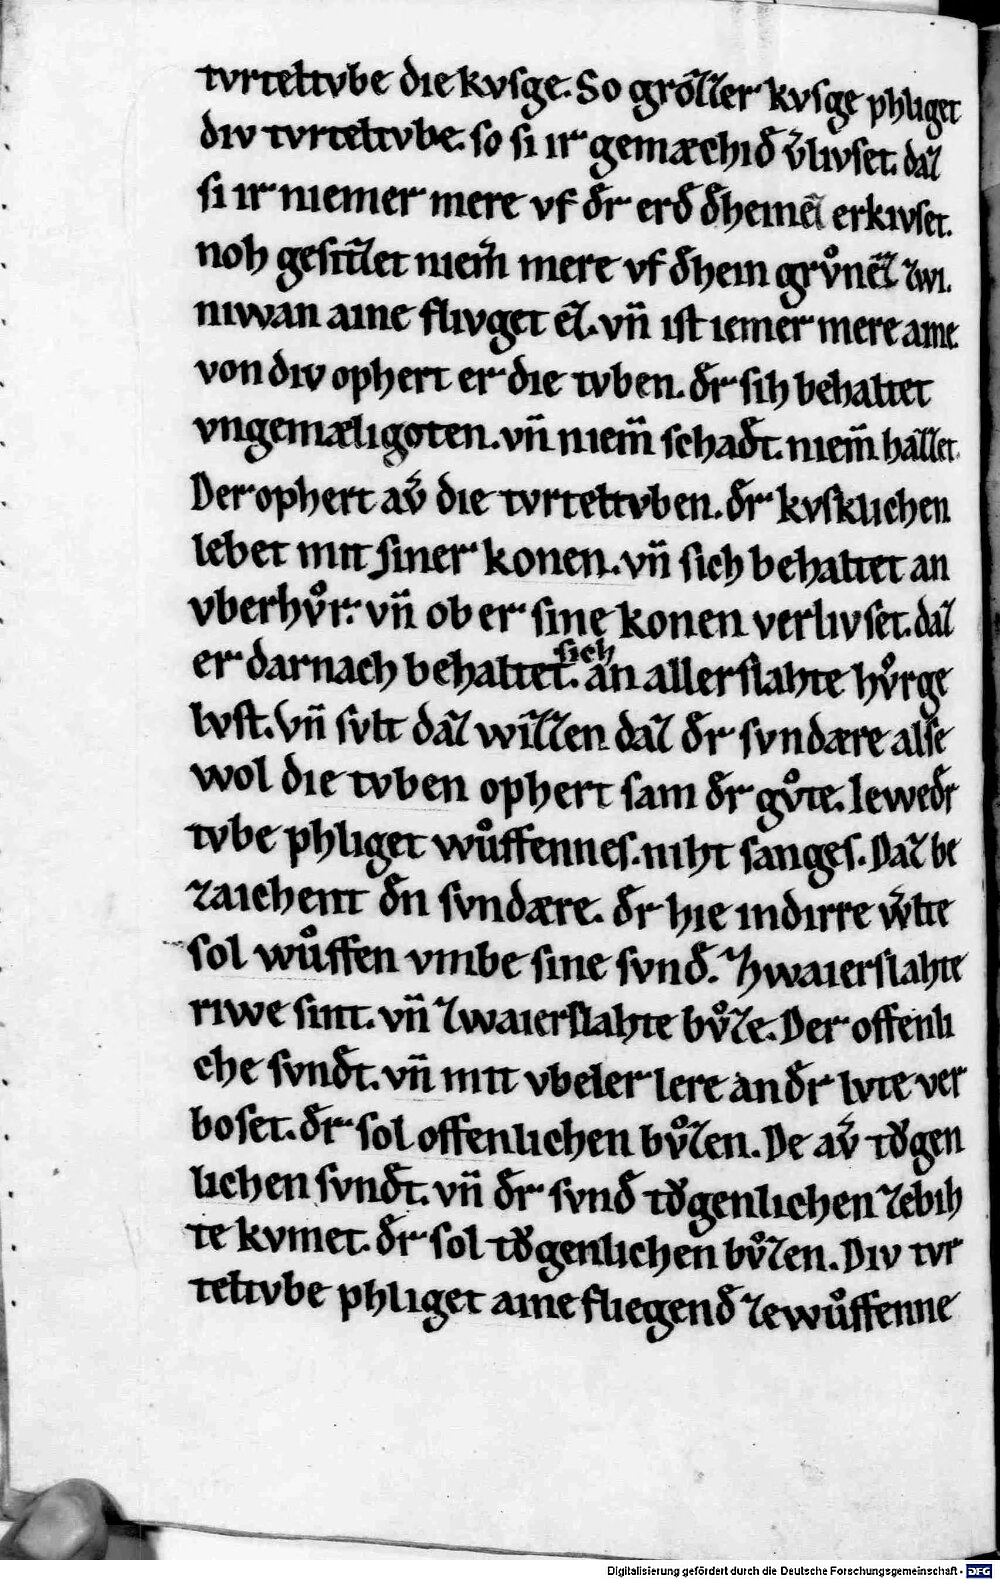 tvrteltvbe die kvsge. So groͤzzer kvsge phliget
div tvrteltvbe. so si ir gemæchid v̄livset. daz
si ir niemer mere vf d̄r erd̄ d̄hemē erkivset.
noh gesitzet niem̄ mere vf d̄hein grvͦnez zwi.
niwan aine flivget ez. vn̄ ist iemer mere aine
von div ophert er die tvben. d̄r sih behaltet
vngemæligoten. vn̄ niem̄ schad̄t. niem̄ hazzet.
Der ophert av̄ die tvrteltvben. d̄r kvsklichen
lebet mit siner konen. vn̄ sich behaltet an
vberhvͦr. vn̄ ob er sine konen verlivset. daz
er darnach behaltet. sich an allerslahte hvͦrge
lvst. Vn̄ svlt daz wizzen daz d̄r svndære alse
wol die tvben ophert sam d̄r gvͦte. Iewed̄r
tvbe phliget wuͦffennes. niht sanges. Daz be
zaichent d̄n svndære. d̄r hie indirre w̄lte
sol wuͦffen vmbe sine svnd̄. Zwaierslahte
riwe sint. vn̄ zwaierslahte bvͦze. Der offenli
che svnd̄t. vn̄ mit vbeler lere an d̄r lvte ver
boset. d̄r sol offenlichen bvͦzen. De av̄ toͮgen
lichen svnd̄t. vn̄ d̄r svnd̄ toͮgenlichen zebih
te kvmet. d̄r sol toͮgenlichen bvͦzen. Div tvr
teltvbe phliget aine fliegend̄ zewuͦffenne
Digitalisierung gefördert durch die Deutsche Forschungsgemeinschaft - DFG